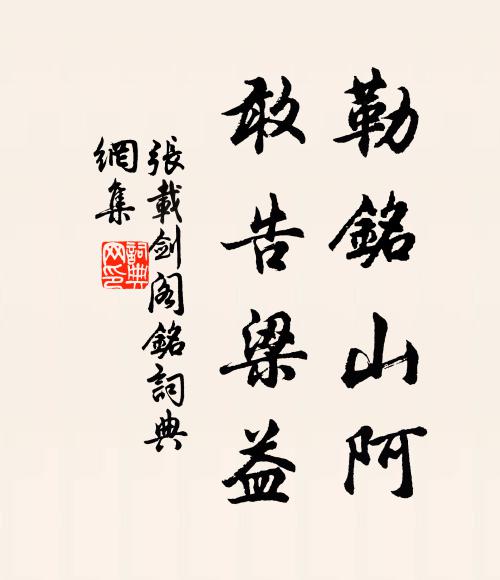 勒銘山阿
敢告梁益
張載剑阁銘詞典
網集
詞典
网印